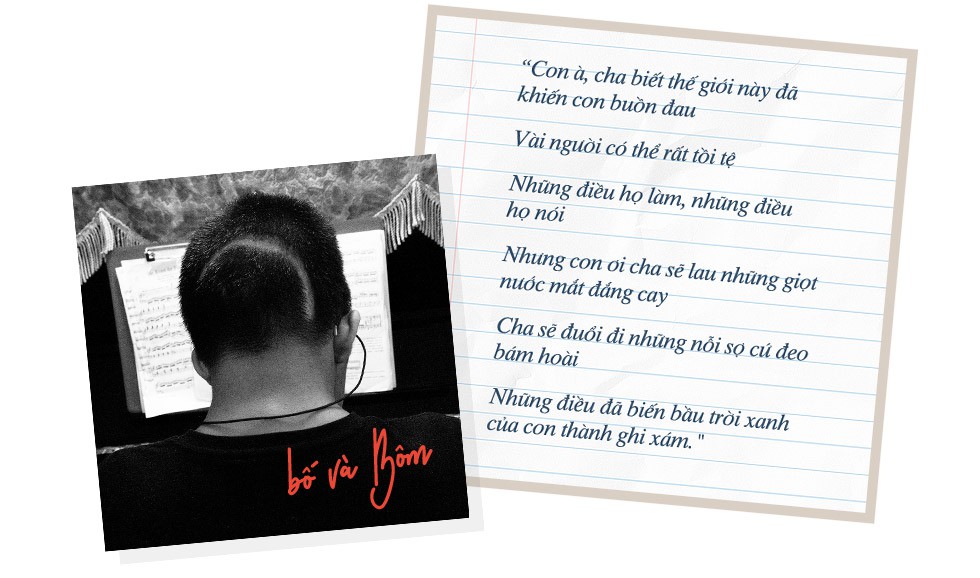 “Con à, cha biết thế giới này đã
khiến con buồn đau
Vài người có thể rất tồi tệ
Những điều họ làm, những điều
họ nói
Nhưng con ơi cha sẽ lau những giọt
nước mắt đắng cay
Cha sẽ đuổi đi những nỗi sợ cứ đeo
bám hoài
Những điều đã biến bầu trời xanh
của con thành ghi xám."
bố và Bôm